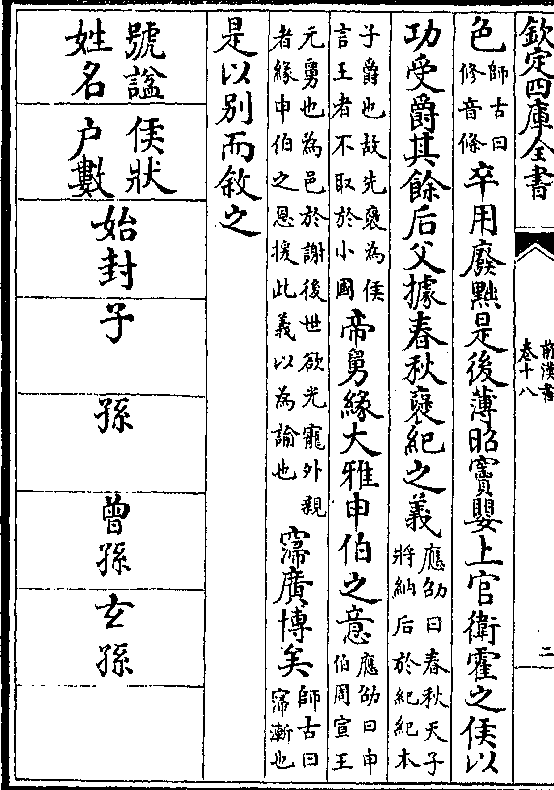 欽定四庫全書
前漢書
卷十八
二
色師古曰脩音條卒用廢黜是後薄昭竇嬰上官衛霍之侯以
功受爵其餘后父據春秋襃紀之義應劭曰春秋天子將納后於紀紀本
子爵也故先襃為侯言王者不取於小國帝舅緣大雅申伯之意應劭曰申伯周宣王
元舅也為邑於謝後世欲光寵外親者緣申伯之恩援此義以為諭也寖廣博矣師古曰寖漸也
是以別而敘之
號諡姓名 侯狀户數 始封 子 孫 曾孫 玄孫